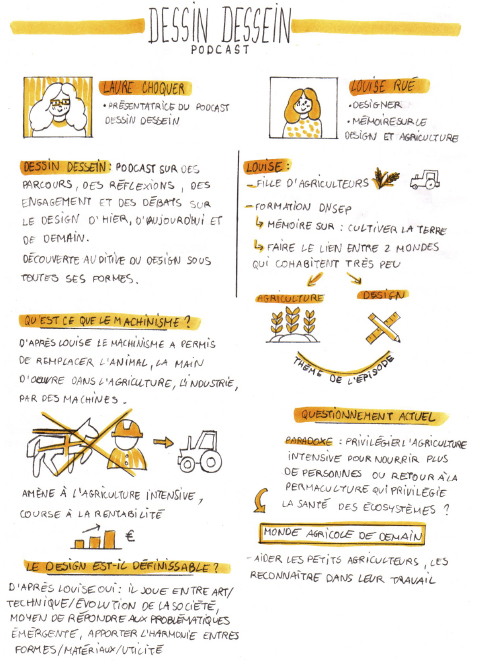 DESSIN DESSEIN
PODCAST
LAURE CHOQUER
• PRÉSENTATRICE DU PODCAST
DESSIN DESSEIN
LOUISE RUÉ
• DESIGNER
• MÉMOIRE SUR LE
DESIGN ET AGRICULTURE
DESSIN DESSEIN : PODCAST SUR DES
PARCOURS, DES RÉFLEXIONS, DES
ENGAGEMENT ET DES DÉBATS SUR
LE DESIGN D'HIER, D'AUJOURD'HUI ET
DE DEMAIN.
DÉCOUVERTE AUDITIVE DU DESIGN SOUS
TOUTES SES FORMES.
LOUISE :
- FILLE D'AGRICULTEURS
- FORMATION DNSEP
↳ MÉMOIRE SUR : CULTIVER LA TERRE
↳ FAIRE LE LIEN ENTRE 2 MONDES
QUI COHABITENT TRÈS PEU
AGRICULTURE
DESIGN
THÈME DE L'ÉPISODE
QU'EST CE QUE LE MACHINISME ?
D'APRÈS LOUISE LE MACHINISME A PERMIS
DE REMPLACER L'ANIMAL, LA MAIN
D'ŒUVRE DANS L'AGRICULTURE, L'INDUSTRIE,
PAR DES MACHINES.
AMÈNE À L'AGRICULTURE INTENSIVE,
COURSE À LA RENTABILITÉ
€
LE DESIGN EST-IL DÉFINISSABLE ?
D'APRÈS LOUISE OUI : IL JOUE ENTRE ART/
TECHNIQUE/ÉVOLUTION DE LA SOCIÉTÉ,
MOYEN DE RÉPONDRE AUX PROBLÉMATIQUES
ÉMERGENTE, APPORTER L'HARMONIE ENTRES
FORMES/MATÉRIAUX/UTILITÉ
QUESTIONNEMENT ACTUEL
PARADOXE : PRIVILÉGIER L'AGRICULTURE
INTENSIVE POUR NOURRIR PLUS
DE PERSONNES OU RETOUR À LA
PERMACULTURE QUI PRIVILÉGIE
LA SANTÉ DES ÉCOSYSTÈMES ?
MONDE AGRICOLE DE DEMAIN
- AIDER LES PETITS AGRICULTEURS, LES
RECONNAÎTRE DANS LEUR TRAVAIL